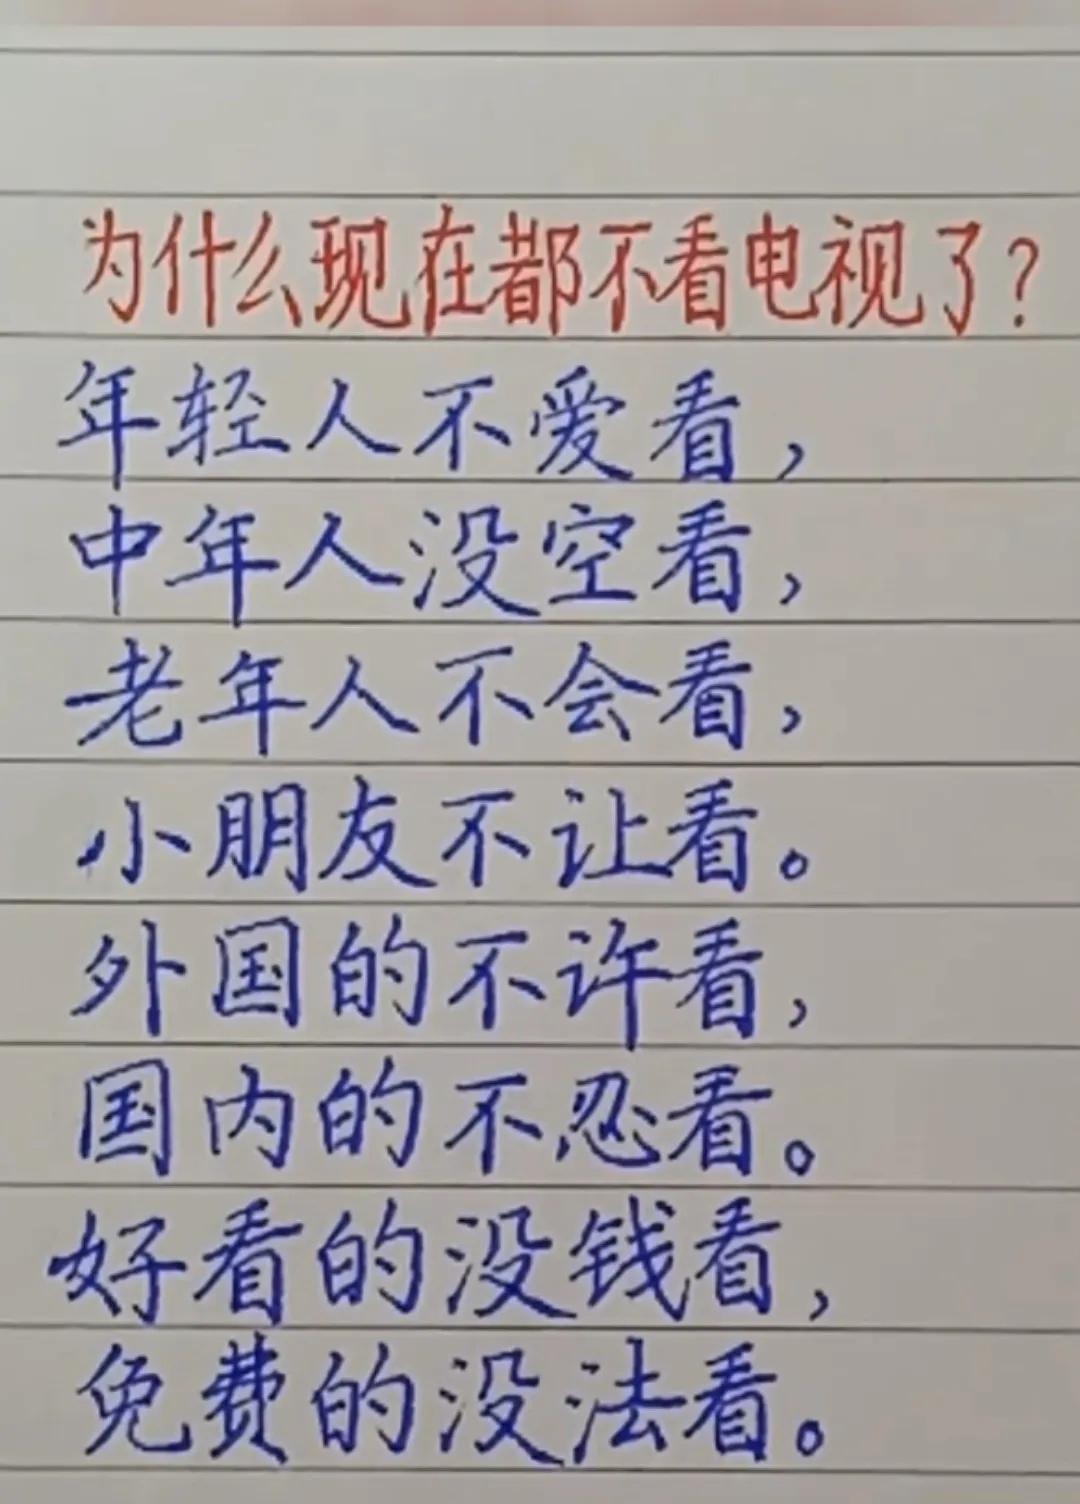 为什么现在都不看电视了?
年轻人不爱看,
中年人没空看,
老年人不会看,
小朋友不让看。
外国的不许看,
国内的不忍看。
好看的没钱看,
免费的没法看。